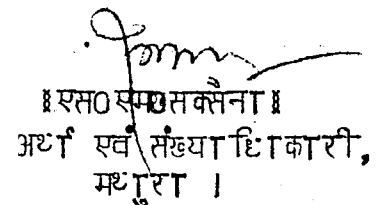 ॥एस0 एम0 सक्सैना॥
अर्था एवं संख्याधिाकारी,
मथुरा ।